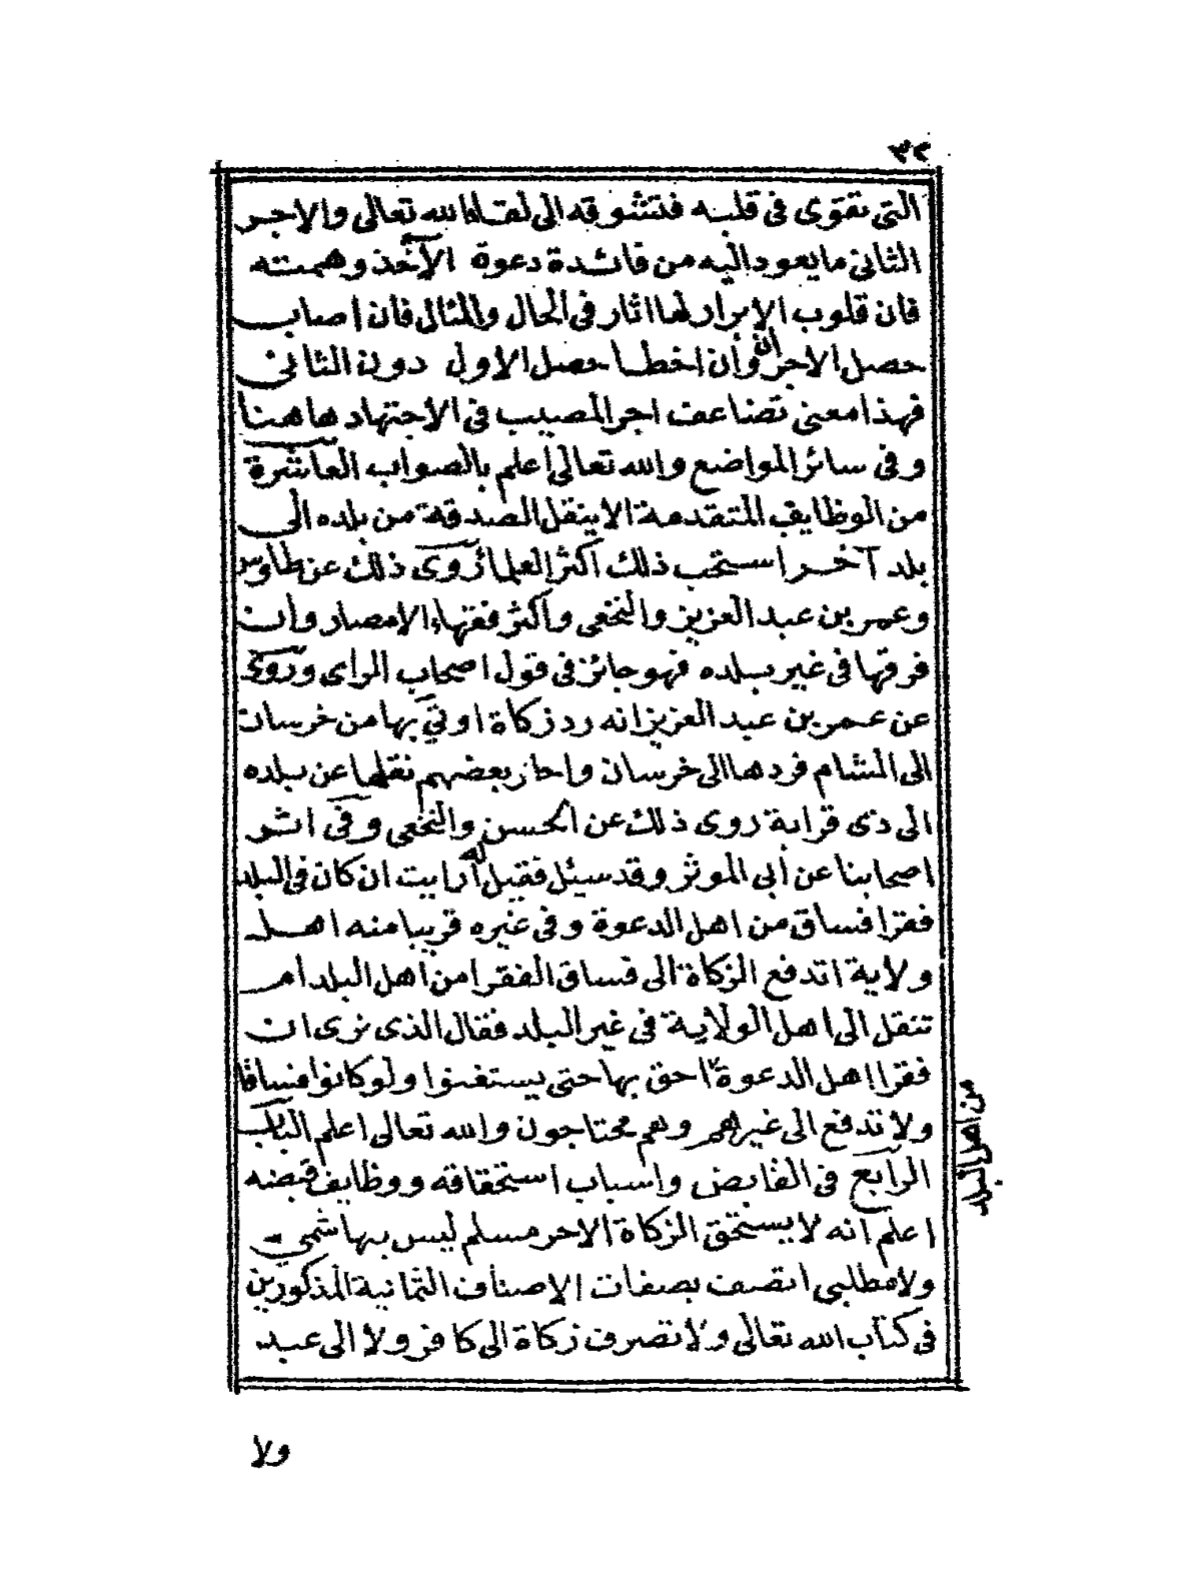 ٣٢
التى تقوى فى قلبه فتشوقه الى لقاء الله تعالى والاجر
الثانى ما يعود اليه من فائدة دعوة الآخذ وهمته
فان قلوب الابرار لها اثار فى الحال والمئال فان اصاب
حصل الاجران وأن اخطا حصل الاول دون الثانى
فهذا معنى تضاعف اجر المصيب فى الاجتهاد هاهنا
وفى سائر المواضع والله تعالى اعلم بالصواب العاشرة
من الوظايف المتقدمة الا ينقل الصدقة من بلده الى
بلد آخر استحب ذلك اكثر العلما روى ذلك عن طاوس
وعمر بن عبد العزيز والنخعى واكثر فقهاء الامصار وان
فرقها فى غير بلده فهو جائز فى قول اصحاب الراى وروى
عن عمر بن عبد العزيز انه رد زكاة اوتى بها من خرسان
الى الشام فردها الى خرسان واجاز بعضهم نقلها عن بلده
الى ذى قرابة روى ذلك عن الحسن والنخعى وفى اثر
اصحابنا عن أبى الموثر وقد سيئل فقيل له أرايت ان كان فى البلد
فقرا فساق من اهل الدعوة وفى غيره قريبا منه اهل
ولاية اتدفع الزكاة الى فساق الفقرا من اهل البلد أم
تنقل الى اهل الولاية فى غير البلد فقال الذى نرى ان
فقرا اهل الدعوة احق بها حتى يستغنوا ولو كانوا فساقا
من اهل البلد
ولا تدفع الى غيرهم وهم محتاجون والله تعالى اعلم الباب
الرابع فى القابض واسباب استحقاقه ووظايف قبضه
اعلم انه لا يستحق الزكاة الا حر مسلم ليس بهاشمي
ولا مطلبى اتصف بصفات الاصناف الثمانية المذكورين
فى كتاب الله تعالى ولا تصرف زكاة الى كافر ولا الى عبد
ولا